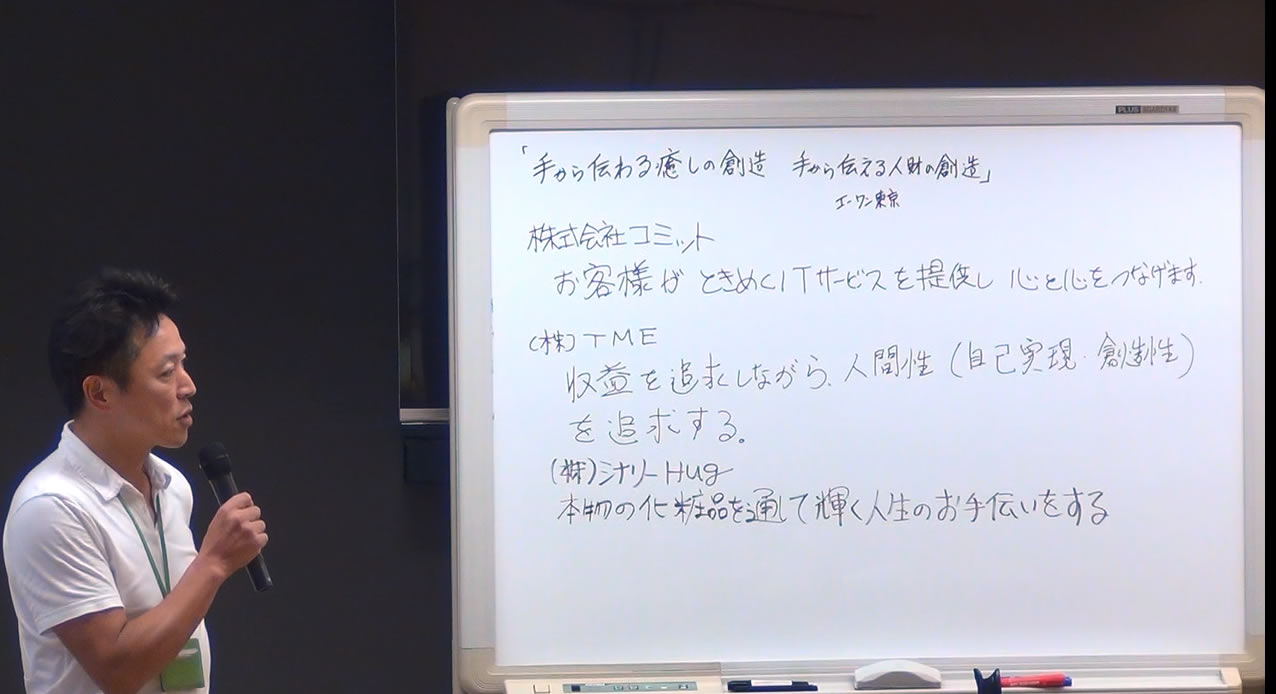 PLUS
「手から伝わる癒しの創造 手から伝える人財の創造」
エーワン東京
株式会社コミット
お客様が ときめくITサービスを提供し 心と心をつなげます.
(株)TME
収益を追求しながら、人間性(自己実現・創造性)
を追求する。
(株)シナリーHug
本物の化粧品を通して輝く人生のお手伝いをする